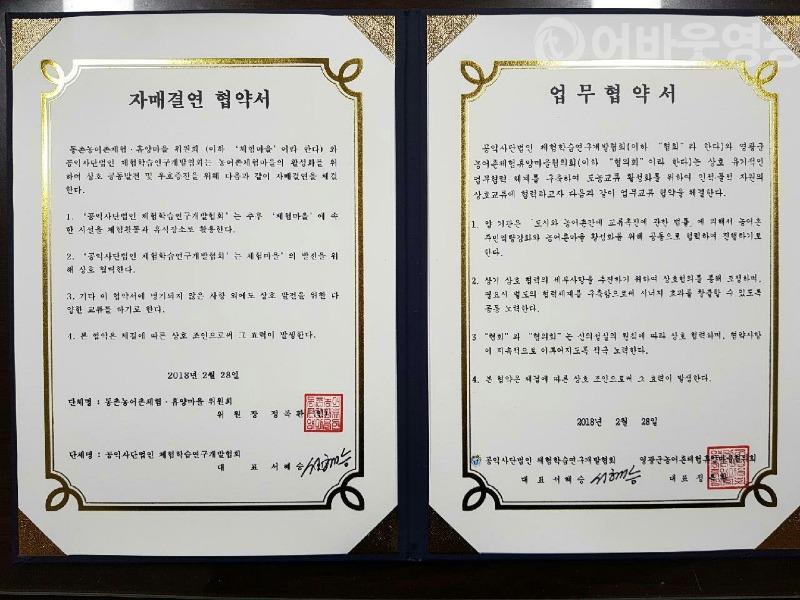 어바웃영광
자매결연 협약서
동촌농어촌체험·휴양마을 위원회 (이하 '체험마을' 이라 한다) 와
공익사단법인 체험학습연구개발협회는 농어촌체험마을의 활성화를 위
하여 상호 공동발전 및 우호증진을 위해 다음과 같이 자매결연을 체결
한다.
1. '공익사단법인 체험학습연구개발협회' 는 추후 '체험마을' 에 속
한 시설을 체험활동과 휴식장소로 활용한다.
2. '공익사단법인 체험학습연구개발협회' 는 체험마을' 의 발전을 위
해 상호 협력한다.
3. 기타 이 협약서에 명기되지 않은 사항 외에도 상호 발전을 위한 다
양한 교류를 하기로 한다.
4. 본 협약은 체결에 따른 상호 조인으로써 그 효력이 발생한다.
2018년 2월 28일
단체명 : 동촌농어촌체험·휴양마을 위원회
위 원 장 정
단체명 : 공익사단법인 체험학습연구개발협회
대 표 서혜승
업무협약서
공익사단법인 체험학습연구개발협회[이하 "협회"라 한다]와 영광군
농어촌체험휴양마을협의회[이하 "협의회"이라 한다]는 상호 유기적인
업무협력 체계를 구축하여 도농교류 활성화를 위하여 인적·물적 자원의
상호교류에 협력하고자 다음과 같이 업무교류 협약을 체결한다.
1. 양 기관은 「도시와 농어촌간에 교류촉진에 관한 법률」에 의해서 농어촌
주민역량강화와 농어촌마을 활성화를 위해 공동으로 협력하여 진행하기로
한다.
2. 상기 상호 협력의 세부사항을 추진하기 위하여 상호협의를 통해 조정하며,
필요시 별도의 협력체계를 구축함으로써 시너지 효과를 창출할 수 있도록
공동 노력한다.
3 "협회"와 "협의회"는 신의성실의 원칙에 따라 상호 협력하며, 협약사항
이 지속적으로 이루어지도록 적극 노력한다.
4. 본 협약은 체결에 따른 상호 조인으로써 그 효력이 발생한다.
2018년 2월 28일
공익사단법인 체험학습연구개발협회 영광군농어촌체험휴양마을협의회
대 표 서 혜 승 대 표 정